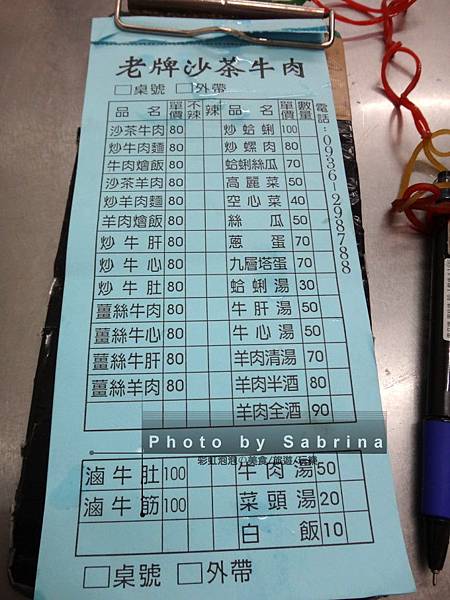 老牌沙茶牛肉
□桌號 □外帶
品名 單價 不辣 辣 品名 單價 數量
沙茶牛肉 80 炒蛤蜊 100
炒牛肉麵 80 炒螺肉 80
牛肉燴飯 80 蛤蜊絲瓜 70
沙茶羊肉 80 高麗菜 50
炒羊肉麵 80 空心菜 40
羊肉燴飯 80 絲瓜 50
炒牛肝 80 蔥蛋 70
炒牛心 80 九層塔蛋 70
炒牛肚 80 蛤蜊湯 30
薑絲牛肉 80 牛肝湯 50
薑絲牛心 80 牛心湯 50
薑絲牛肝 80 羊肉清湯 70
薑絲羊肉 80 羊肉半酒 80
羊肉全酒 90
電話:0936-298788
Photo by Sabrina
彩虹泡泡の美食/旅遊/玩樂
滷牛肚 100 牛肉湯 50
滷牛筋 100 菜頭湯 20
白飯 10
□桌號 □外帶